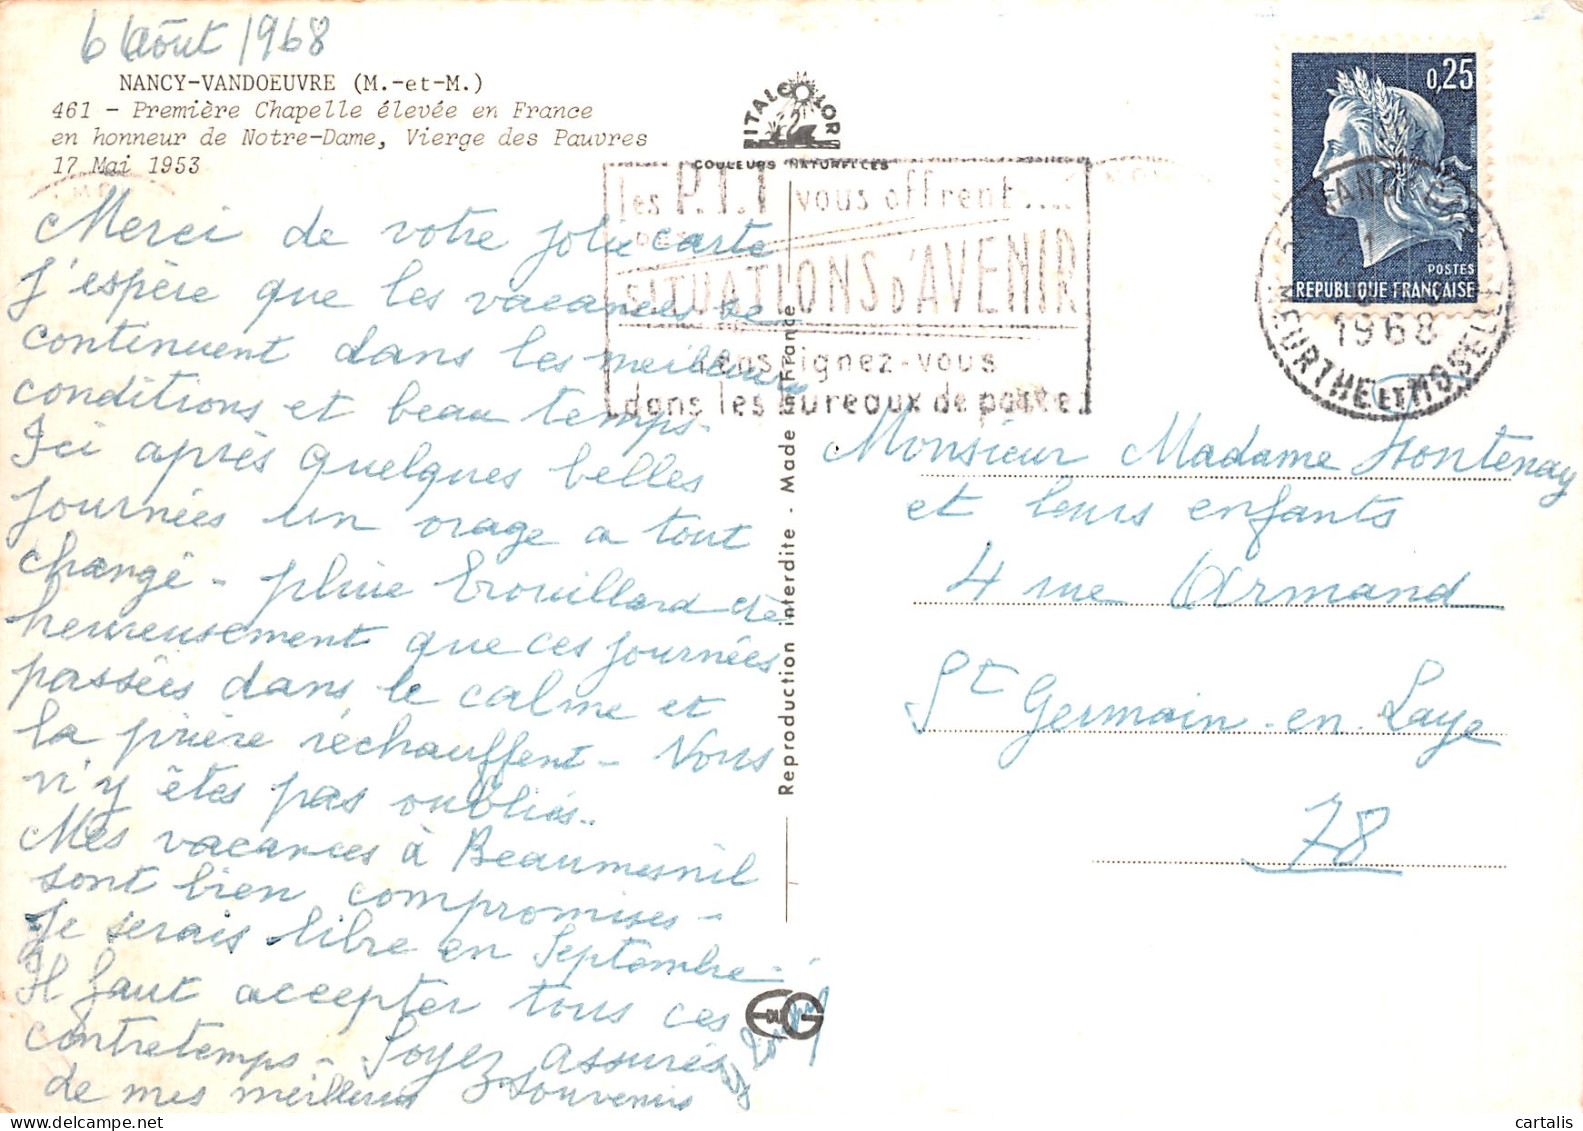 6 Août 1968
NANCY-VANDOEUVRE (M.-et-M.)
461 - Première Chapelle élevée en France
en honneur de Notre-Dame, Vierge des Pauvres
17 Mai 1953
Merci de votre jolie carte
J'espère que les vacances se
continuent dans les meilleures
conditions et beau temps.
Ici après quelques belles
journées un orage a tout
changé - pluie brouillard
heureusement que ces journées
passées dans le calme et
la prière réchauffent - Vous
n'y êtes pas oubliés..
Mes vacances à Beaumesnil
sont bien compromises -
Je serais libre en Septembre -
Il faut accepter tous ces
contretemps - Soyez assurés
de mes meilleurs souvenirs
ITALCOLOR
COULEURS NATURELLES
les P.T.T vous offrent.....
DES
SITUATIONS D'AVENIR
renseignez-vous
dans les bureaux de poste
Reproduction interdite - Made in France
EDG
0,25
POSTES
REPUBLIQUE FRANÇAISE
NANCY
1968
MEURTHE ET MOSELLE
Monsieur Madame Fontenay
et leurs enfants
4 rue Armand
St Germain-en-Laye
78
cartalis